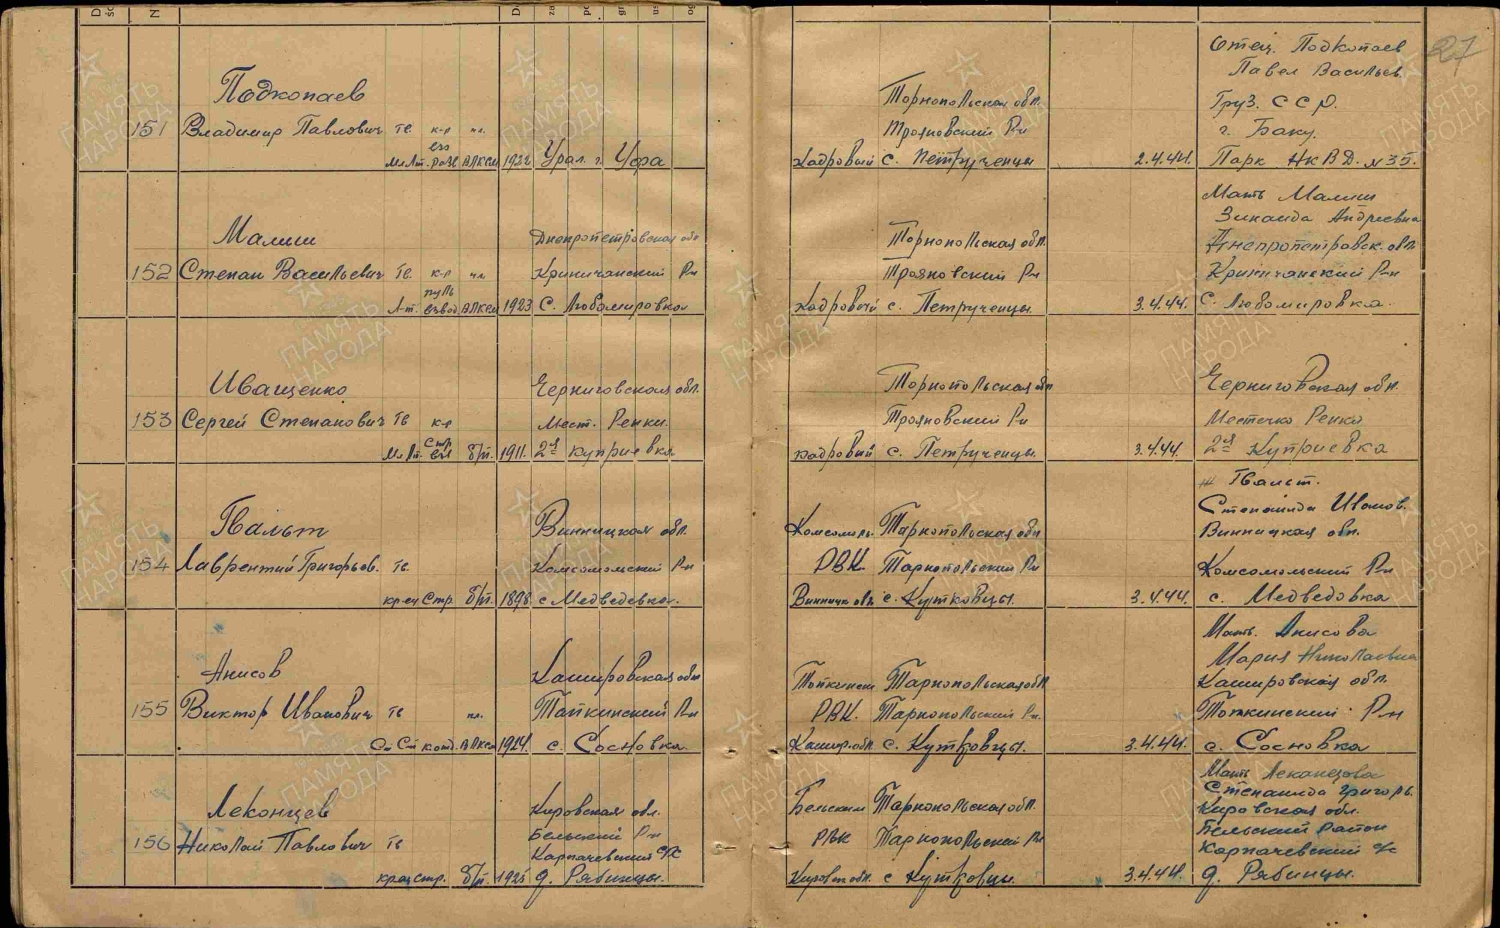 27
Подкопаев
151 Владимир Павлович Гв. к-р чл.
взв
Мл Лт. разв ВЛКСМ 1922 Урал. г. Уфа
Торнопольская обл.
Трояновский Р-н
Кадровый с. Петрученцы 2.4.44.
Отец. Подкопаев
Павел Васильев.
Груз. ССР.
г. Баку.
Парк НКВД. №35.
Малиш
152 Степан Васильевич Гв. к-р чл.
пуль
Л-т. взвод ВЛКСМ 1923
Днепропетровская обл
Криничанский Р-н
С. Любомировка
Торнопольская обл.
Трояновский Р-н
Кадровый с. Петрученцы. 3.4.44.
Мать Малиш
Зинаида Андреевна
Днепропетровск. обл.
Криничанский Р-н
С. Любомировка.
Иващенко
153 Сергей Степанович Гв к-р
Стр
Мл Лт. взв б/п. 1911.
Черниговская обл.
Мест. Ренки.
2ая Куприевка
Торнопольская обл
Трояновский Р-н
кадровый с. Петрученцы. 3.4.44.
Черниговская обл.
Местечко Ренки
2ая Куприевка
Гвальт
154 Лаврентий Григорьев. Гв.
кр-ец Стр. б/п. 1898
Винницкая обл.
Комсомольский Р-н
с Медведевка.
Комсомоль. Тарнопольская обл
РВК. Тарнопольский Р-н
Винницк обл. с. Кутковцы. 3.4.44.
Ж Гвальт.
Степанида Иванов.
Винницкая обл.
Комсомольский Р-н
с. Медведовка
Анисов
155 Виктор Иванович Гв чл.
Ст Ст комд. ВЛКСМ 1924.
Кашировская обл
Тапкинский Р-н
с. Сосновка.
Топкинск Тарнопольская обл
РВК. Тарнопольский Р-н.
Кашир. обл. с. Кутковцы. 3.4.44.
Мать. Анисова
Мария Николаевна
Кашировская обл.
Топкинский Р-н
с. Сосновка
Леконцев
156 Николай Павлович Гв
кр-ец стр. б/п. 1925
Кировская обл.
Бельский Р-н
Карпачевский с/с
д. Рябинцы.
Бельским Тарнопольская обл.
РВК Тарнопольский Р-н
Кировск обл. с Кутковцы. 3.4.44.
Мать Леканцова
Степанида Григорь.
Кировская обл.
Бельский район
Карпачевский с/с
д. Рябинцы.
ПАМЯТЬ
НАРОДА